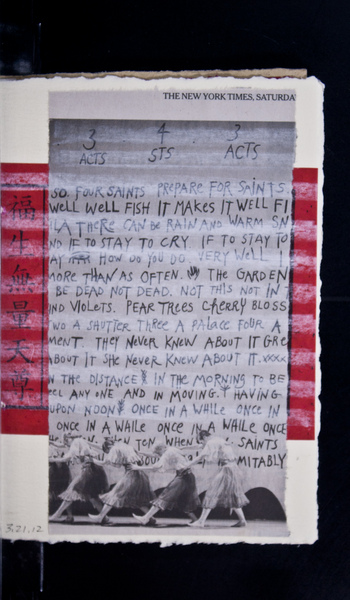 THE NEW YORK TIMES, SATURDA
3 4 3
ACTS STS ACTS
SO. FOUR SAINTS PREPARE FOR SAINTS
WELL WELL FISH IT MAKES IT WELL FI
LA THERE CAN BE RAIN AND WARM SN
ND IF TO STAY TO CRY IF TO STAY TO
AY HOW DO YOU DO. VERY WELL I
MORE THAN AS OFTEN. THE GARDEN
BE DEAD NOT DEAD. NOT THIS NOT IN
IND VIOLETS. PEAR TREES CHERRY BLOSS
WO A SHUTTER THREE A PALACE FOUR A
MENT. THEY NEVER KNEW ABOUT IT GRE
ABOUT IT SHE NEVER KNEW ABOUT IT. XXXX
N THE DISTANCE IN THE MORNING TO BE
EEL ANY ONE AND IN MOVING. T HAVING
UPON NOON ONCE IN A WHILE ONCE IN
ONCE IN A WHILE ONCE IN A WHILE ONCE
TEN WHEN SAINTS
MITABLY
福生無量天尊
3.21.12